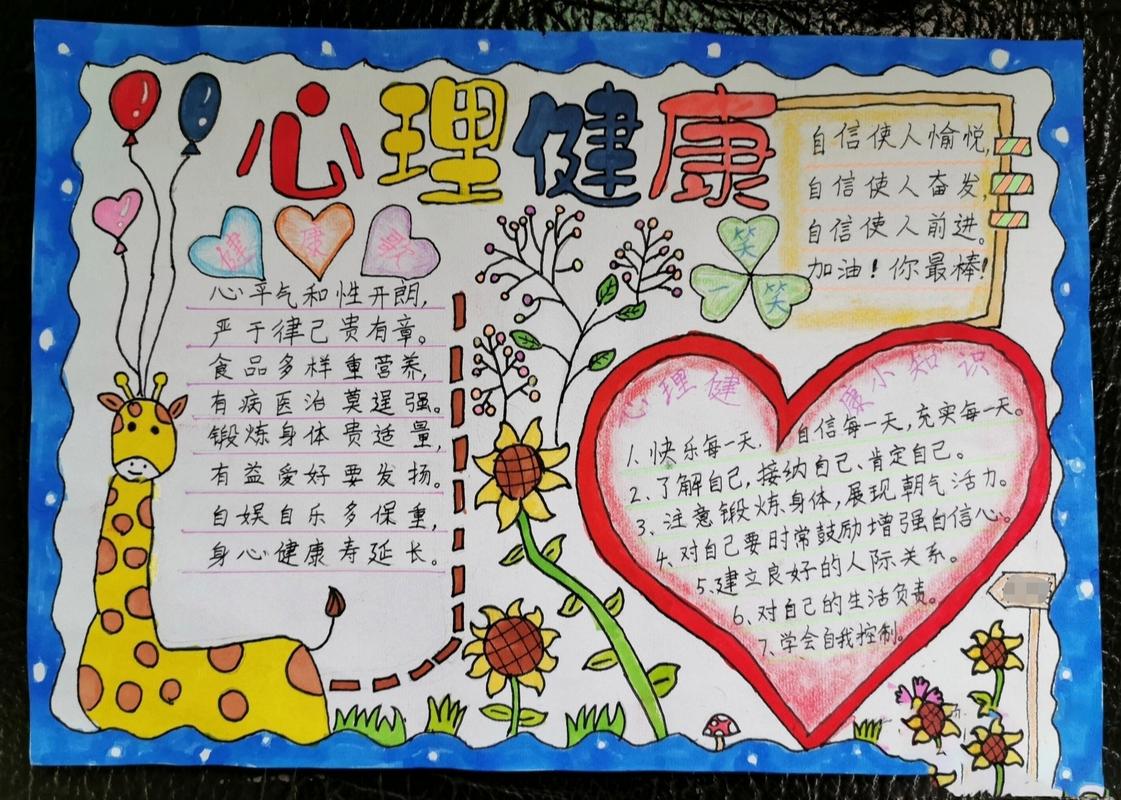 心理健康
自信使人愉悦,
自信使人奋发,
自信使人前进。
加油!你最棒!
健康
心平气和性开朗,
严于律己贵有章。
食品多样重营养,
有病医治莫逞强。
锻炼身体贵适量,
有益爱好要发扬。
自娱自乐多保重,
身心健康寿延长。
笑
一笑
心理健康小知识
1.快乐每一天.自信每一天,充实每一天。
2、了解自己,接纳自己、肯定自己。
3、注意锻炼身体,展现朝气活力。
4、对自己要时常鼓励增强自信心。
5、建立良好的人际关系。
6、对自己的生活负责。
7、学会自我控制。